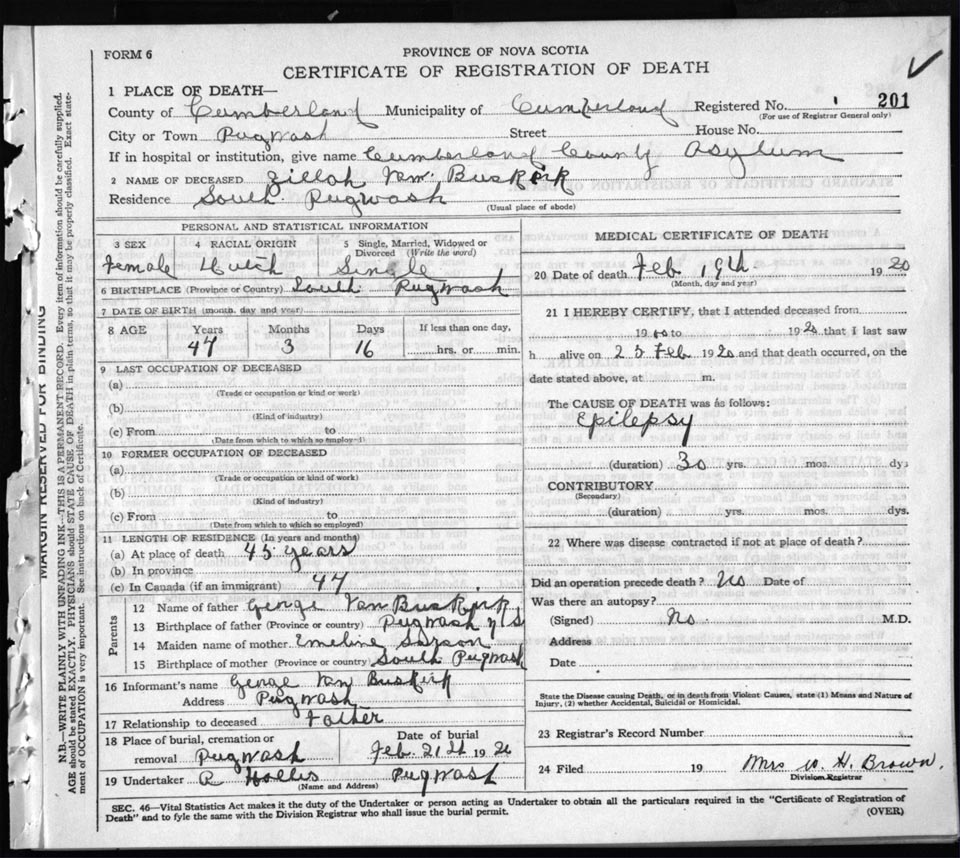 FORM 6
PROVINCE OF NOVA SCOTIA
CERTIFICATE OF REGISTRATION OF DEATH
1 PLACE OF DEATH—
County of Cumberland Municipality of Cumberland Registered No. 201
(For use of Registrar General only)
City or Town Pugwash Street House No.
If in hospital or institution, give name Cumberland County Asylum
2 NAME OF DECEASED Zillah Van Buskirk
Residence South Pugwash
(Usual place of abode)
PERSONAL AND STATISTICAL INFORMATION
3 SEX 4 RACIAL ORIGIN 5 Single, Married, Widowed or Divorced (Write the word)
Female Dutch Single
6 BIRTHPLACE (Province or Country) South Pugwash
7 DATE OF BIRTH (month, day and year)
8 AGE Years Months Days If less than one day,
47 3 16 hrs. or min.
9 LAST OCCUPATION OF DECEASED
(a)
(Trade or occupation or kind of work)
(b)
(Kind of industry)
(c) From to
(Date from which to which so employed)
10 FORMER OCCUPATION OF DECEASED
(a)
(Trade or occupation or kind of work)
(b)
(Kind of industry)
(c) From to
(Date from which to which so employed)
11 LENGTH OF RESIDENCE (In years and months)
(a) At place of death 45 years
(b) In province
(c) In Canada (if an immigrant) 47
Parents
12 Name of father George Van Buskirk
13 Birthplace of father (Province or country) Pugwash N S
14 Maiden name of mother Emeline
15 Birthplace of mother (Province or country) South Pugwash
16 Informant's name George Van Buskirk
Address Pugwash
17 Relationship to deceased Father
18 Place of burial, cremation or removal Pugwash
Date of burial
Feb. 21st 1920
19 Undertaker A Hollis Pugwash
(Name and Address)
MEDICAL CERTIFICATE OF DEATH
20 Date of death Feb 19th 1920
(Month, day and year)
21 I HEREBY CERTIFY, that I attended deceased from
19 to 192 that I last saw
h alive on 25 Feb 1920 and that death occurred, on the
date stated above, at m.
The CAUSE OF DEATH was as follows:
Epilepsy
(duration) 30 yrs. mos. dys
CONTRIBUTORY
(Secondary)
(duration) yrs. mos. dys.
22 Where was disease contracted if not at place of death?
Did an operation precede death? No Date of
Was there an autopsy?
(Signed) No M.D.
Address
Date
State the Disease causing Death, or in death from Violent Causes, state (1) Means and Nature of
Injury, (2) whether Accidental, Suicidal or Homicidal.
23 Registrar's Record Number
24 Filed 19 Mrs W. H. Brown.
Division Registrar
SEC. 46—Vital Statistics Act makes it the duty of the Undertaker or person acting as Undertaker to obtain all the particulars required in the "Certificate of Registration of
Death" and to fyle the same with the Division Registrar who shall issue the burial permit.
(OVER)
MARGIN RESERVED FOR BINDING
N.B.—WRITE PLAINLY WITH UNFADING INK—THIS IS A PERMANENT RECORD. Every item of information should be carefully supplied.
AGE should be stated EXACTLY. PHYSICIANS should STATE CAUSE OF DEATH in plain terms, so that it may be properly classified. Exact state-
ment of OCCUPATION is very important. See instructions on back of Certificate.